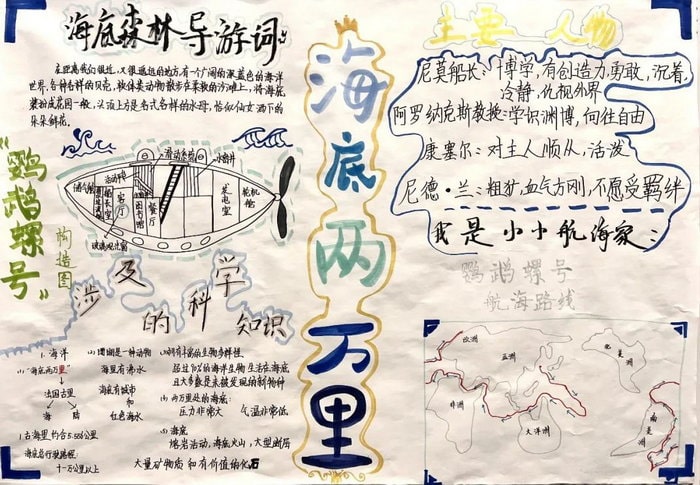 海底森林导游词
在距离我们很近，又很遥远的地方，有一个广阔的深蓝色的海洋
世界，各种各样的贝壳，软体类动物散步在柔软的沙滩上，将海底
装扮成花园一般，头顶上方是各式各样的水母，恰似仙女洒下的
朵朵鲜花。
"鹦鹉螺号"
构造图
滑动系统
小船井
储气舱
活动门
船长室
客厅
餐厅
发电室
轮机舱
玻璃观察窗
涉及
的科学
知识
1.海洋
(1)"海底两万里"
法国古里
海 陆
1古海里约合5.556公里
海底总行驶路程：
十一万公里以上
(2)珊瑚是一种动物
海里有沸水
海底有城市
和
红色海水
(3)拥有丰富的生物多样性
超过70%的海洋生物生活在海底
且大多数是未被发现的新物种
(4)两万里处的海底：
压力非常大 气温非常低
(5)海底
熔岩活动，海底火山，大型断层
大量矿物质和有价值的化石
海底两万里
主要人物
尼莫船长：博学，有创造力，勇敢，沉着，
冷静，仇视外界
阿罗纳克斯教授：学识渊博，向往自由
康塞尔：对主人顺从，活泼
尼德·兰：粗犷，血气方刚，不愿受羁绊
我是小小航海家：
鹦鹉螺号
航海路线
欧洲
亚洲
非洲
大洋洲
北美洲
南美洲